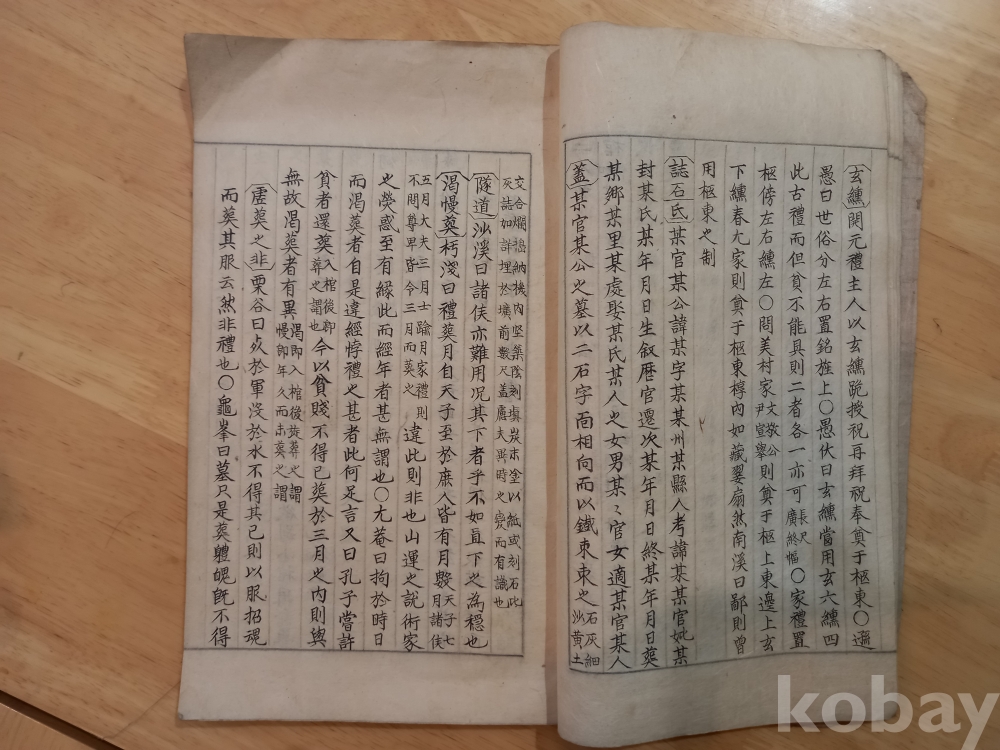 玄纁開元禮主人以玄纁跪授祝再拜祝奉奠于柩東〇遯
愚曰世俗分左右置銘旌上〇愚伏曰玄纁當用玄六纁四
此古禮而但貧不能具則二者各一亦可長尺廣終幅〇家禮置
柩傍左右纁左〇問美村家文敬公尹宣擧則奠于柩上東邊上玄
下纁春九家則奠于柩東椁內如藏翣扇然南溪曰鄙則曾
用柩東之制
誌石底某官某公諱某字某某州某縣人考諱某某官妣某
封某氏某年月日生叙歷官遷次某年月日終某年月日葬
某鄉某里某處娶某氏某人之女男某〻官女適某官某人
蓋某官某公之墓以二石字面相向而以鐵束束之石灰細沙黃土
交合爛搗納機內坚築陰刻塡炭末塗以紙或刻石此
灰誌如許埋於壙前數尺盖慮夫異時之變而有識也
隧道沙溪曰諸侯亦難用况其下者乎不如直下之為穩也
渴慢葬朽淺曰禮葬月自天子至於庶人皆有月數天子七月諸侯
五月大夫三月士踰月家禮則不問尊卑皆令三月而葬之違此則非也山運之說術家
之熒惑至有緣此而經年者甚無謂也〇尤菴曰拘於時日
而渴葬者自是違經悖禮之甚者此何足言又曰孔子嘗許
貧者還葬入棺後卽葬之謂也今以貧賤不得已葬於三月之內則與
無故渴葬者有異渴卽入棺後旋葬之謂慢卽年久而未葬之謂
虛葬之非栗谷曰死於軍沒於水不得其已則以服招魂
而葬其服云然非禮也〇龜峯曰墓只是葬軆魄旣不得
kobay